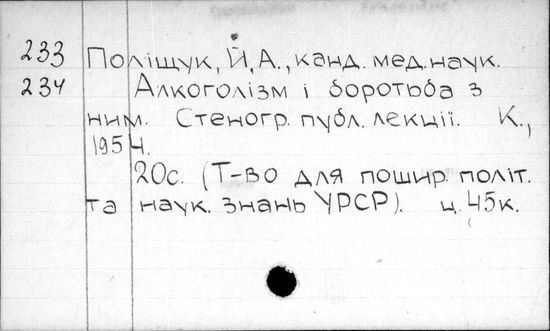 233 Поліщук, Й.А., канд. мед. наук.
234 Алкоголізм і боротьба з
ним. Стеногр. публ. лекції. К.,
1954.
20с. (Т-во для пошир. політ.
та наук. знань УРСР). ц. 45к.